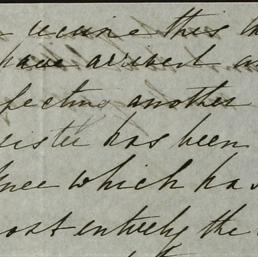 receive this
have arrived
fecting another
sister has been
knee which has
most entirely the